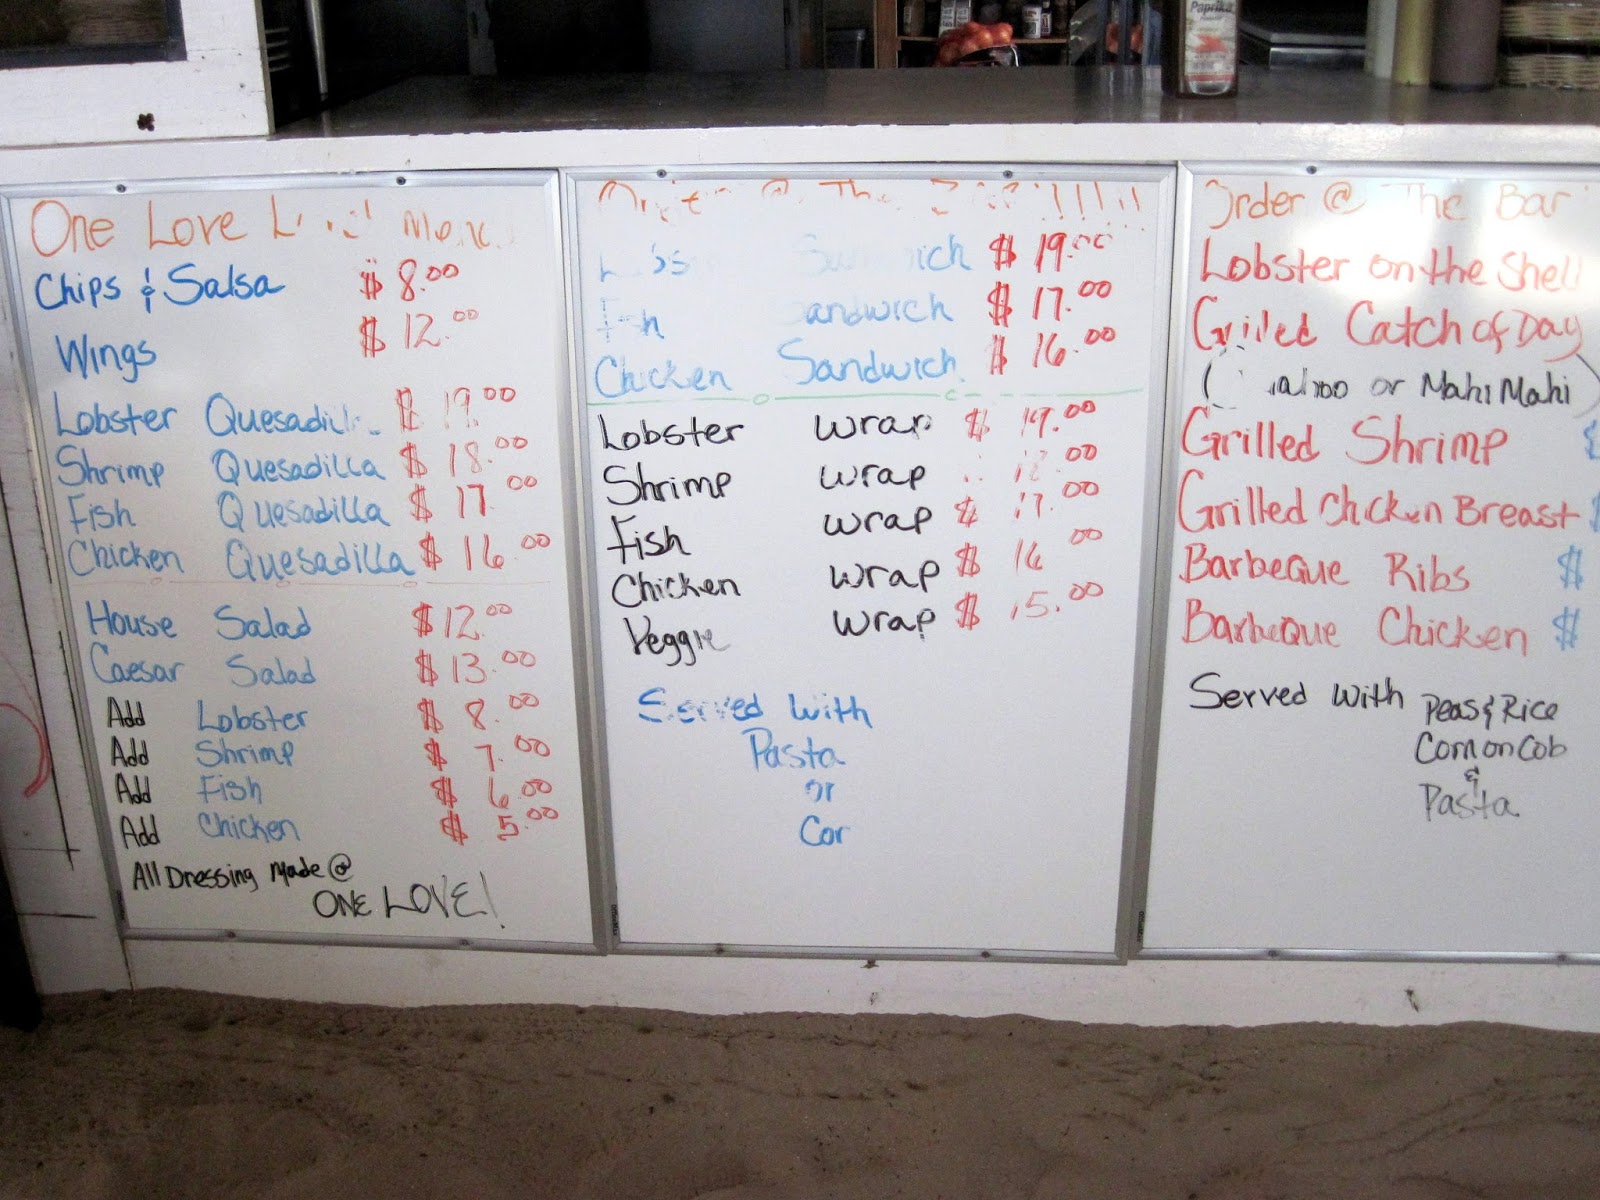 Paprika
One Love
Chips & Salsa $ 8.00
Wings $ 12.00
Lobster $ 19.00
Shrimp Quesadilla $ 18.00
Fish Quesadilla $ 17.00
Chicken Quesadilla $ 16.00
House Salad $ 12.00
Caesar Salad $ 13.00
Add Lobster $ 8.00
Add Shrimp $ 7.00
Add Fish $ 6.00
Add Chicken $ 5.00
All Dressing Made @
ONE LOVE!
@ The
$ 19.00
$ 17.00
Chicken Sandwich $ 16.00
Lobster wrap $ 19.00
Shrimp wrap
Fish wrap $ 17.00
Chicken wrap $ 16.00
Veggie wrap $ 15.00
Served With
Pasta
or
Order @ The Bar
Lobster on the Shell
Grilled Catch of Day
or Mahi Mahi)
Grilled Shrimp
Grilled Chicken Breast $
Barbeque Ribs $
Barbeque Chicken $
Served With Peas & Rice
Corn on Cob
&
Pasta